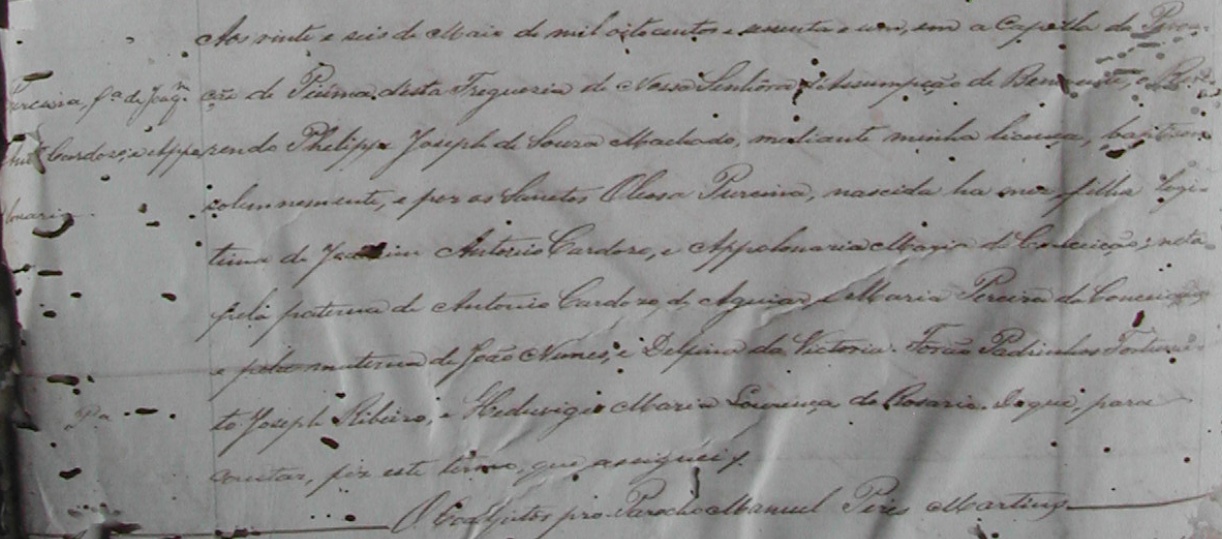 Aos vinte e seis de Maio de mil oitocentos e sesenta e um, em a Capella da Povoa-
ção de Piúma desta Freguezia de Nossa Senhora d'Assumpção de Benevente, o Reve-
rendo Philippe Joseph de Souza Machado, mediante minha licença, baptizou
solemnemente, e poz os Sanctos Oleos a Pureina, nascida ha mez, filha legi-
tima de Joaquim Antonio Cardozo, e Appolonaria Maria da Conceição; neta
pela paterna de Antonio Cardozo de Aguiar e Maria Pereira da Conceição
e pela materna de João Nunes, e Delfina da Victoria. Forão Padrinhos Fortuna-
to Joseph Ribeiro, e Heduvigis Maria Lourença do Rosario. Do que, para
constar, fiz este termo, que assignei.
O Coadjutor pro Parocho Manuel Pires Martins
fª de Joaqm
Antº Cardozo, e Appo
lonaria